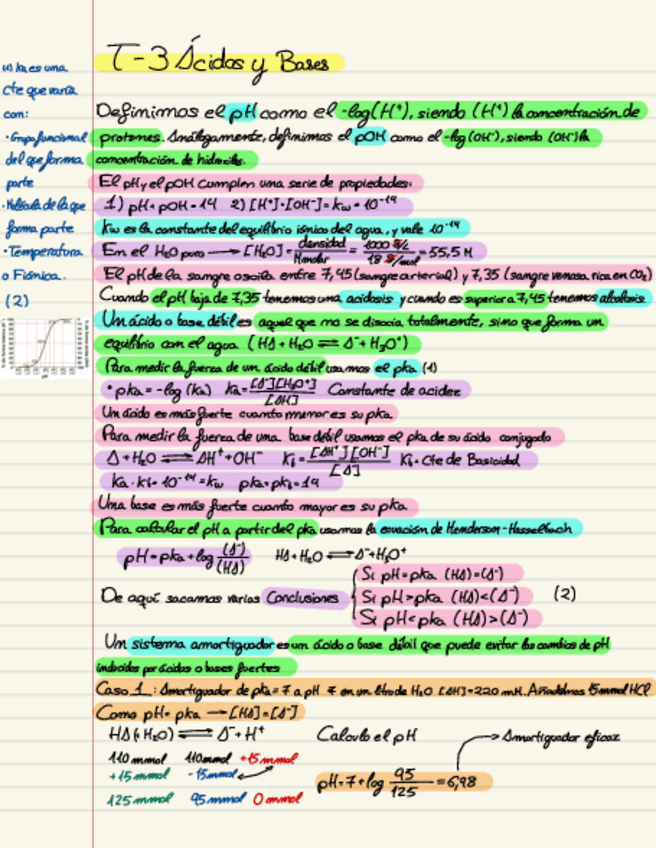 T-3 Ácidos y Bases
Definimos el pH como el -log(H⁺), siendo (H⁺) la concentración de
protones. Análogamente, definimos el pOH como el -log(OH⁻), siendo (OH⁻) la
concentración de hidroxilos.
El pH y el pOH cumplen una serie de propiedades:
1) pH + pOH = 14 2) [H⁺]·[OH⁻] = Kw = 10⁻¹⁴
Kw es la constante del equilibrio iónico del agua, y vale 10⁻¹⁴
En el H₂O puro → [H₂O] = densidad/Mmolar = 1000 g/L / 18 g/mol = 55,5 M
El pH de la sangre oscila entre 7,45 (sangre arterial) y 7,35 (sangre venosa rica en CO₂)
Cuando el pH baja de 7,35 tenemos una acidosis y cuando es superior a 7,45 tenemos alcalosis
Un ácido o base débil es aquel que no se disocia totalmente, sino que forma un
equilibrio con el agua (HA + H₂O ⇌ A⁻ + H₃O⁺)
Para medir la fuerza de un ácido débil usamos el pka (1)
• pka = -log (Ka) Ka = [A⁻][H₃O⁺]/[AH] Constante de acidez
Un ácido es más fuerte cuanto menor es su pka
Para medir la fuerza de una base débil usamos el pka de su ácido conjugado
A + H₂O ⇌ AH⁺ + OH⁻ Kb = [AH⁺][OH⁻]/[A] Kb = Cte de Basicidad
Ka · Kb = 10⁻¹⁴ = Kw pka + pkb = 14
Una base es más fuerte cuanto mayor es su pka
Para calcular el pH a partir del pka usamos la ecuación de Henderson-Hasselbach
pH = pka + log (A⁻)/(HA) HA + H₂O ⇌ A⁻ + H₃O⁺
De aquí sacamos varias Conclusiones
Si pH = pka (HA) = (A⁻)
Si pH > pka (HA) < (A⁻) (2)
Si pH < pka (HA) > (A⁻)
Un sistema amortiguador es un ácido o base débil que puede evitar los cambios de pH
inducidos por ácidos o bases fuertes
Caso 1: Amortiguador de pka = 7 a pH 7 en un litro de H₂O [AH] = 220 mM. Añadimos 15 mmol HCl
Como pH = pka → [HA] = [A⁻]
HA (+ H₂O) ⇌ A⁻ + H⁺ Calculo el pH → Amortiguador eficaz
110 mmol 110 mmol +15 mmol
+15 mmol -15 mmol
pH = 7 + log 95/125 = 6,98
125 mmol 95 mmol 0 mmol
(1) ka es una
cte que varía
con:
• Grupo funcional
del que forma
parte
• Molécula de la que
forma parte
• Temperatura
o F iónica.
(2)